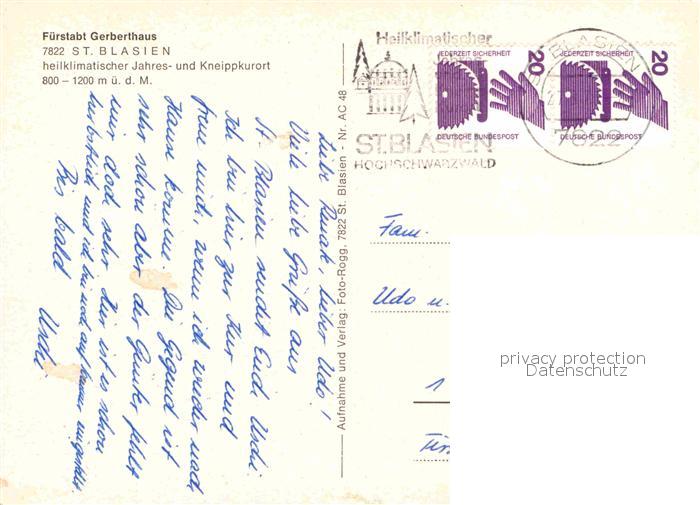 Fürstabt Gerberthaus
7822 ST. BLASIEN
heilklimatischer Jahres- und Kneippkurort
800 – 1200 m ü. d. M.
Liebe Renate, lieber Udo!
Viele liebe Grüße aus
St. Blasien sendet Euch Uschi.
Ich bin hier zur Kur und
freue mich, wenn ich wieder nach
Hause komme. Die Gegend ist
sehr schön aber der Günter fehlt
mir doch sehr. Hier ist es schon
herbstlich und ich bin noch auf Sommer eingestellt.
Bis bald Uschi
Aufnahme und Verlag: Foto-Rogg, 7822 St. Blasien - Nr. AC 48
Heilklimatischer
ST.BLASIEN
HOCHSCHWARZWALD
ST. BLASIEN
7822
JEDERZEIT SICHERHEIT
20
DEUTSCHE BUNDESPOST
JEDERZEIT SICHERHEIT
20
DEUTSCHE BUNDESPOST
Fam.
Udo u.
1
privacy protection
Datenschutz